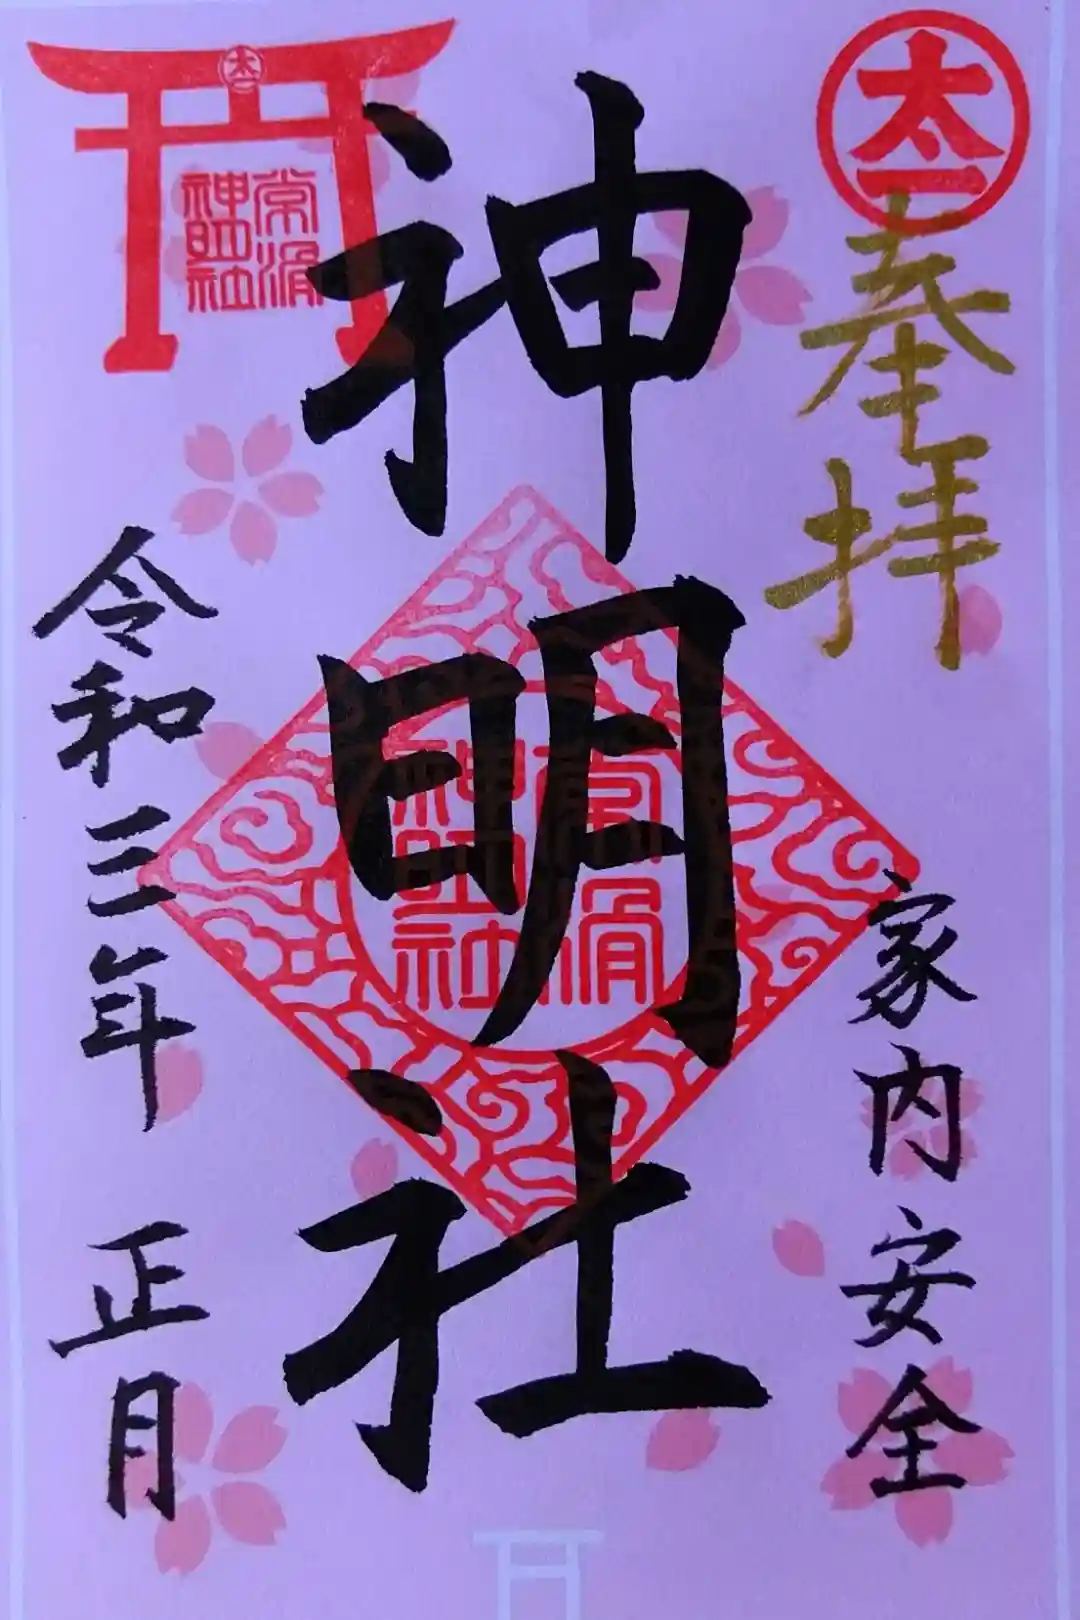 太一
奉拝
家内安全
神明社
常滑
神明社
常滑
神明社
令和三年 正月